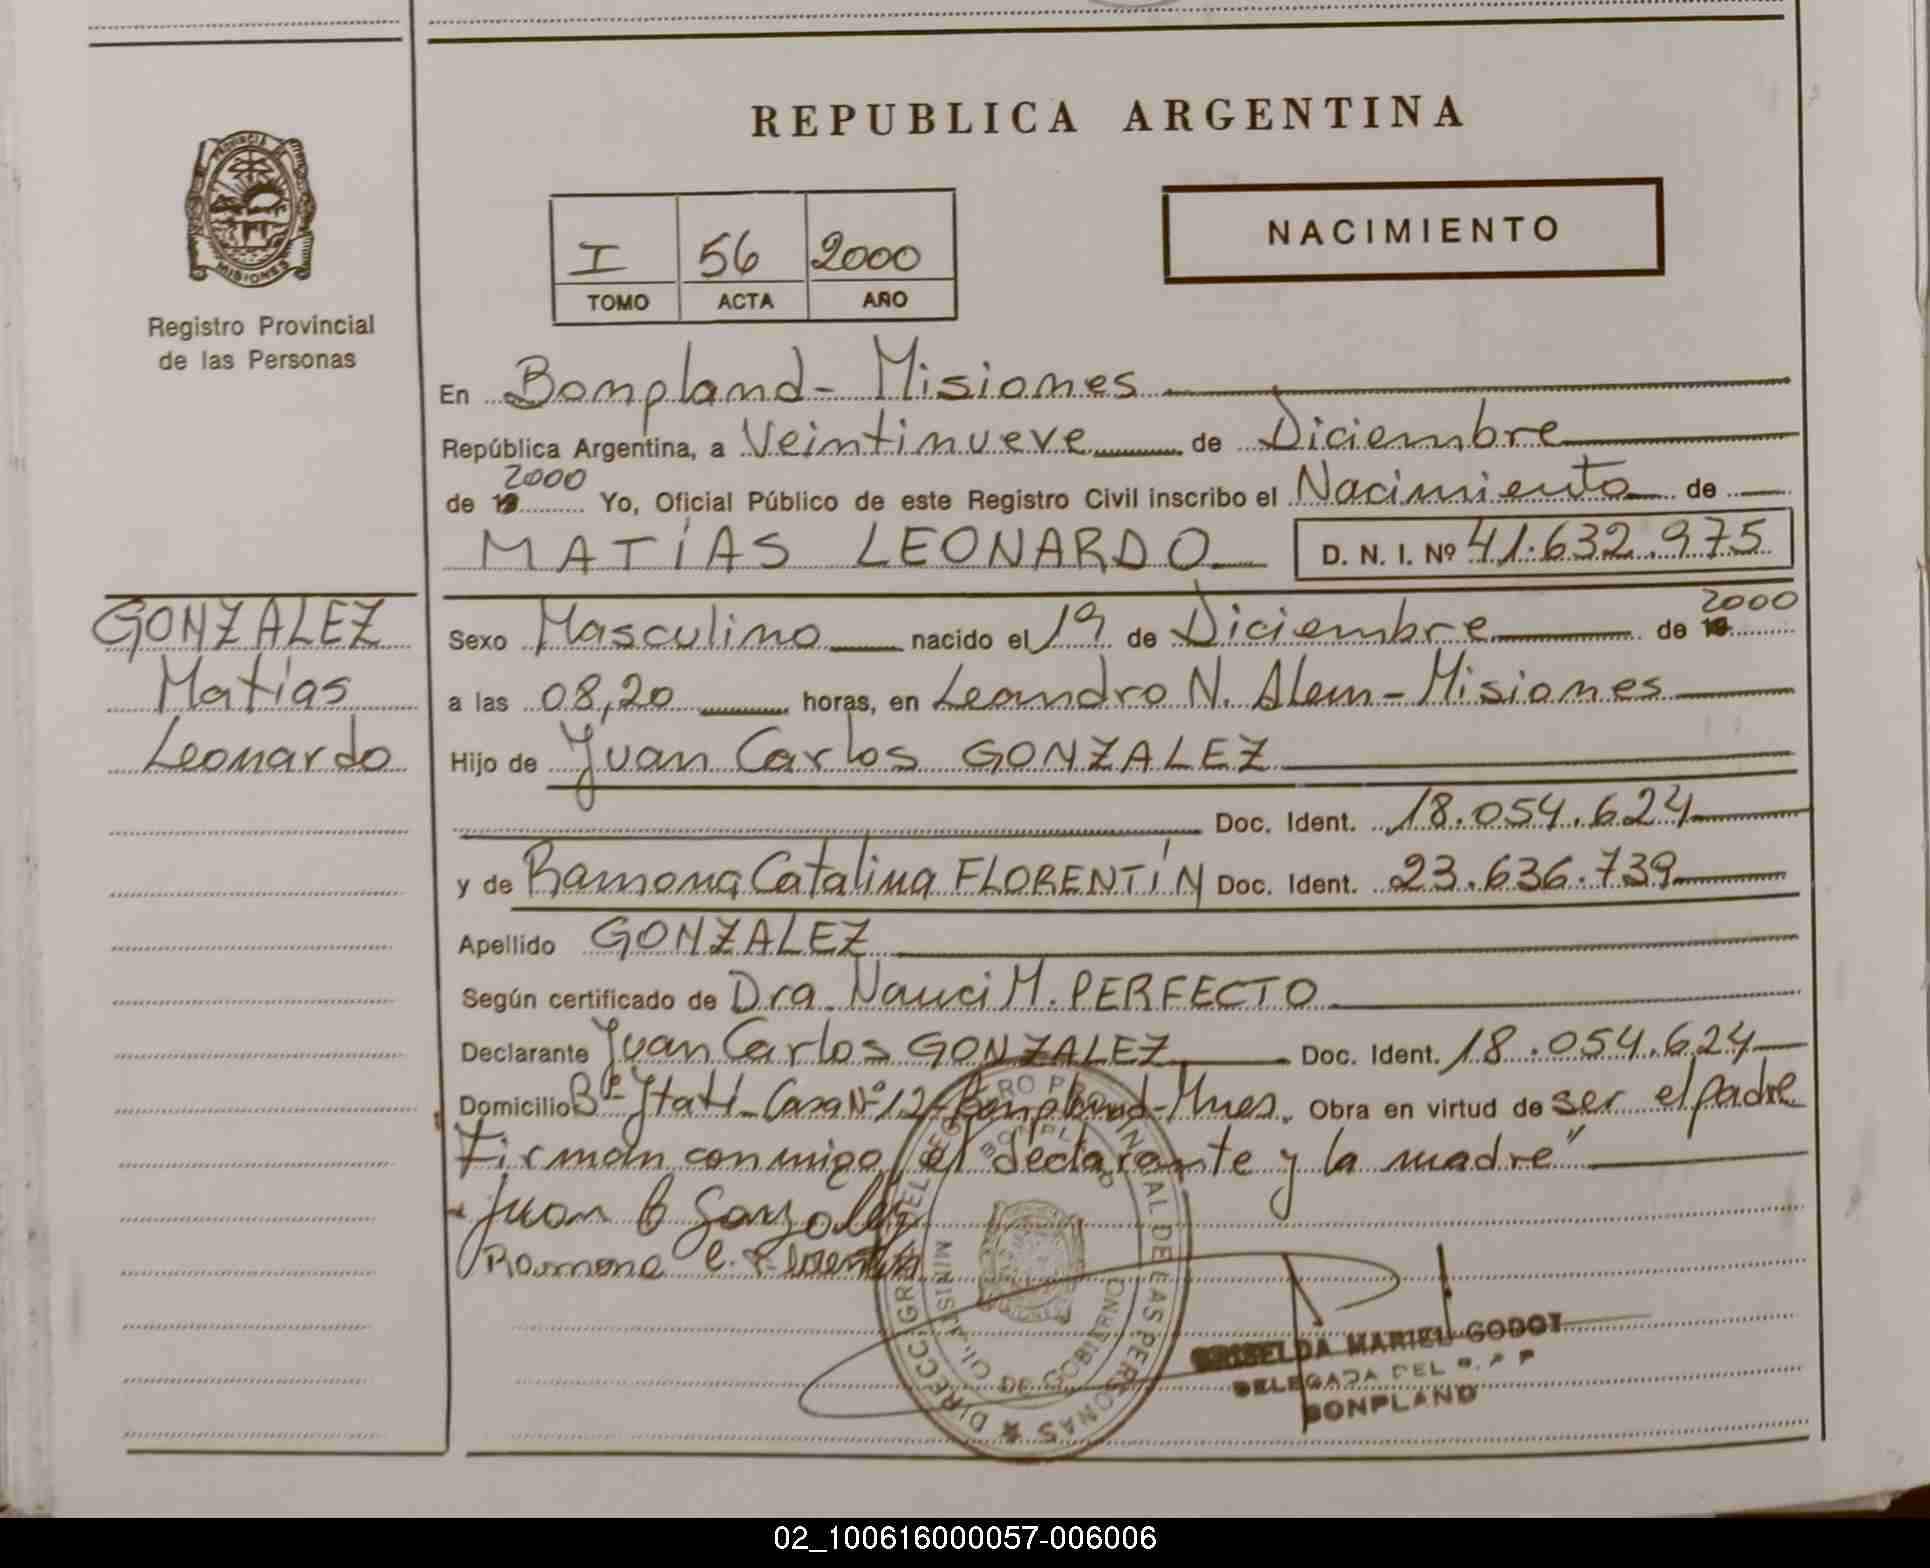 REPUBLICA ARGENTINA
PROVINCIA DE
MISIONES
Registro Provincial
de las Personas
I 56 2000
TOMO ACTA AÑO
NACIMIENTO
En Bonpland - Misiones
República Argentina, a Veintinueve de Diciembre
2000
de 19 Yo, Oficial Público de este Registro Civil inscribo el Nacimiento de
MATÍAS LEONARDO D. N. I. Nº 41.632.975
GONZALEZ
Matías
Leonardo
2000
Sexo Masculino nacido el 19 de Diciembre de 19
a las 08,20 horas, en Leandro N. Alem - Misiones
Hijo de Juan Carlos GONZALEZ
Doc. Ident. 18.054.624
y de Ramona Catalina FLORENTÍN Doc. Ident. 23.636.739
Apellido GONZALEZ
Según certificado de Dra Nanci M. PERFECTO
Declarante Juan Carlos GONZALEZ Doc. Ident. 18.054.624
Domicilio Bº Itatí - Casa Nº 12 - Bonpland - Mnes. Obra en virtud de ser el padre
Firman conmigo el declarante y la madre"
Juan C Gonzalez
Ramona C. Florentin
GRISELDA MARIEL GODOT
DELEGADA DEL R. P P
BONPLAND
02_100616000057-006006